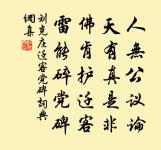 人無公議論
天有真是非
佛肯护迁客
雷能碎党碑
刘克庄迁客党碑詞典
網集